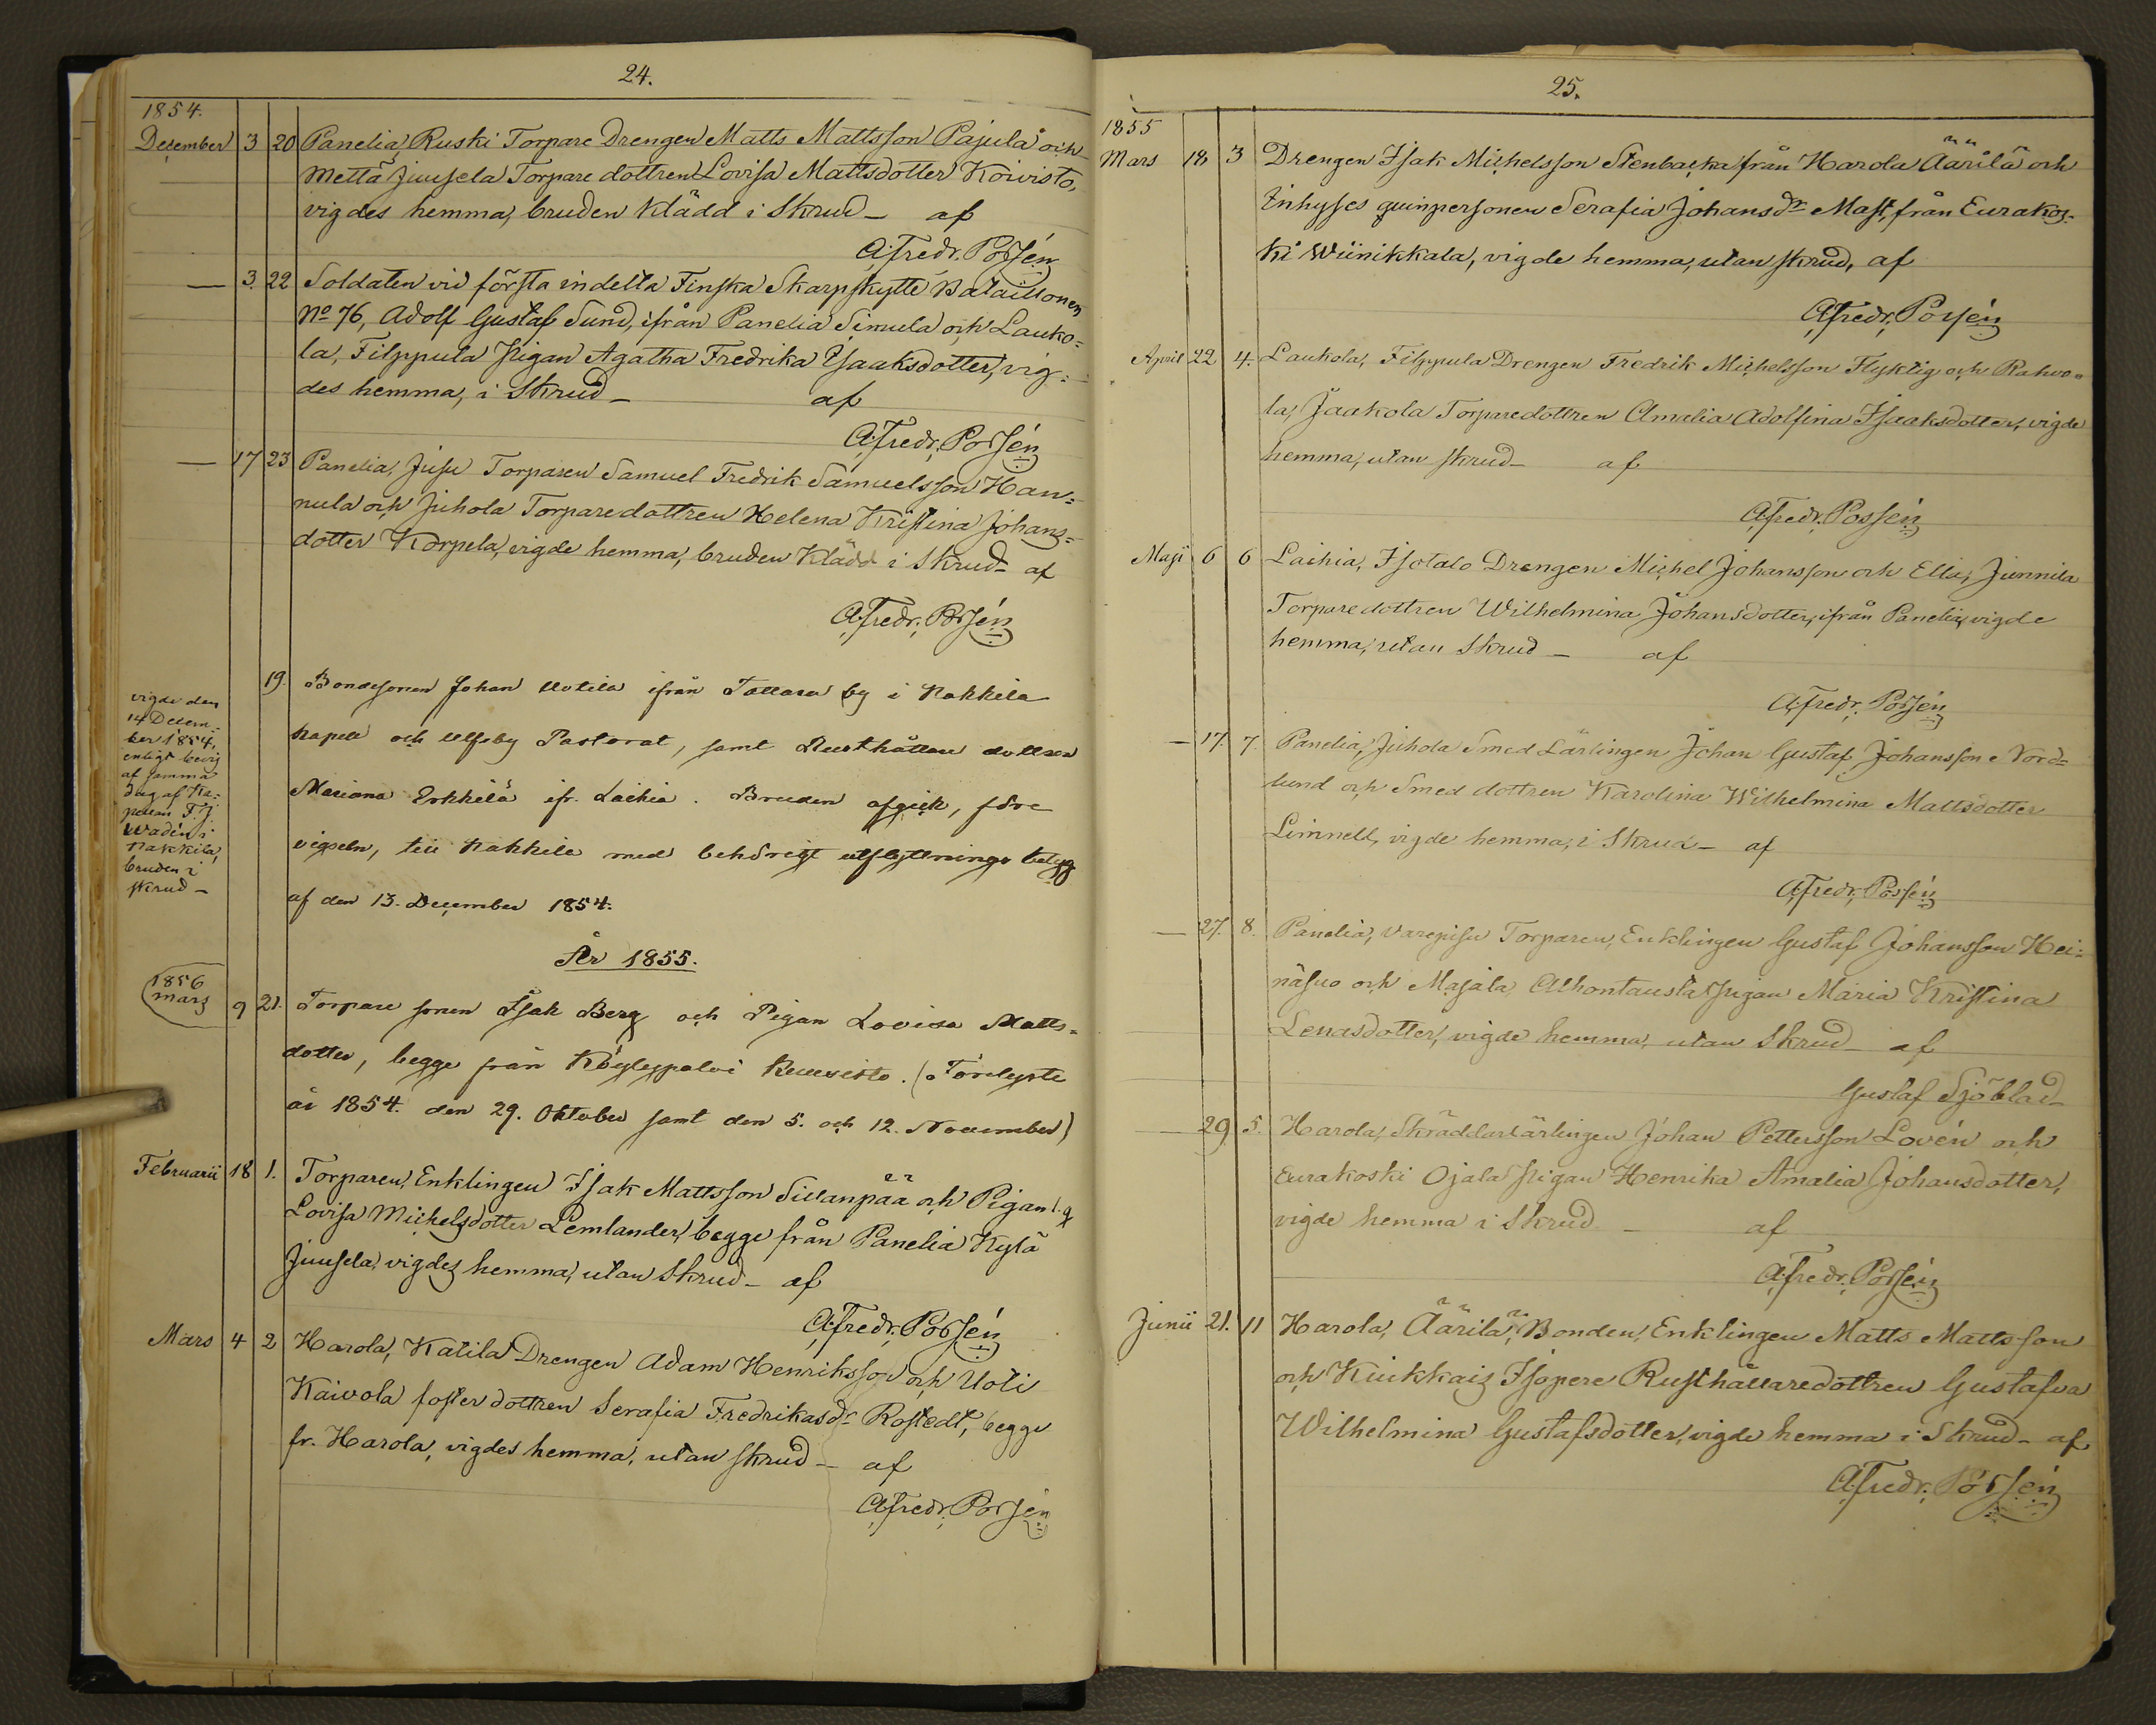 24.
1854.
December 3 20 Panelia, Ruski Torpare Drengen Matts Mattsson Pajula och
Mettä Juusela Torpare dottren Lovisa Mattsdotter Koivisto,
vigdes hemma, bruden klädd i Skrud – af
A. Fredr. Porsén
— 3. 22 Soldaten vid första indelta Finska Skarpskytte Bataillonen
No 76, Adolf Gustaf Sund, ifrån Panelia Simula och Lauko=
la, Filppula Pigan Agatha Fredrika Isaaksdotter, vig=
des hemma, i Skrud – af
A. Fredr. Porsén
— 17 23 Panelia, Jusu Torparen Samuel Fredrik Samuelsson Han=
nula och Juhola Torparedottren Helena Kristina Johans=
dotter Korpela, vigde hemma, bruden klädd i Skrud – af
A. Fredr. Porsén
vigde den
14 Decem-
ber 1854,
enligt bevis
af samma
dag af Ka=
pellan F. J.
Wadén i
Nakkila,
bruden i
skrud –
19. Bondesonen Johan Uotila ifrån Tattara by i Nakkila
Kapell och Ulfsby Pastorat, samt Rusthållare dottren
Mariana Erkkilä ifr. Laihia. Bruden afgick, före
vigseln, till Nakkila med behörigt utflyttnings betyg
af den 13. December 1854.
År 1855.
1856
mars 9 21. Torpare sonen Isak Berg och Pigan Lovisa Matts=
dotter, begge från Köyleypolvi Kuusisto. (Förelyste
år 1854. den 29. Oktober samt den 5. och 12. November)
Februarii 18 1. Torparen, Enklingen Isak Mattsson Sillanpää och Pigan
Lovisa Michelsdotter Lemlander, begge från Panelia Kylä
Juusela, vigdes hemma, utan Skrud – af
A. Fredr. Porsén
Mars 4 2 Harola, Katila Drengen Adam Henriksson och Uoti
Kaivola foster dottren Serafia Fredrikasdr Rostedt, begge
fr. Harola, vigdes hemma, utan skrud – af
A. Fredr. Porsén
25.
1855
Mars 18 3 Drengen Isak Michelsson Stenbacka från Harola Äärilä och
Inhyses qvinpersonen Serafia Johansdr Mast, från Eurakos=
ki Wiinikkala, vigde hemma, utan skrud, af
A. Fredr. Porsén
April 22 4. Laukola, Filppula Drengen Fredrik Michelsson Flyktig och Rahvo=
la, Jaakola Torparedottren Amalia Adolfina Isaaksdotter, vigde
hemma, utan skrud – af
A. Fredr. Porsén
Maji 6 6 Laihia, Isotalo Drengen Michel Johansson och Ella, Junnila
Torpare dottren Wilhelmina Johansdotter, ifrån Panelia, vigde
hemma, utan Skrud – af
A. Fredr. Porsén
— 17. 7. Panelia, Juhola Smed Lärlingen Johan Gustaf Johansson Nord=
lund och Smed dottren Karolina Wilhelmina Mattsdotter
Limnell, vigde hemma, i Skrud – af
A. Fredr. Porsén
— 27. 8. Panelia, Varepisu Torparen, Enklingen Gustaf Johansson Hei=
näsuo och Majala, Alhontausta Pigan Maria Kristina
Lenasdotter, vigde hemma, utan Skrud – af
Gustaf Sjöblad
— 29. 5. Harola, Skräddarlärlingen Johan Pettersson Lovén och
Eurakoski Ojala Pigan Henrika Amalia Johansdotter,
vigde hemma i Skrud – af
A. Fredr. Porsén
Junii 21. 11 Harola, Äärilä, Bonden, Enklingen Matts Mattsson
och Kiukkais Isopere Rusthållaredottren Gustafva
Wilhelmina Gustafsdotter, vigde hemma i Skrud – af
A. Fredr. Porsén